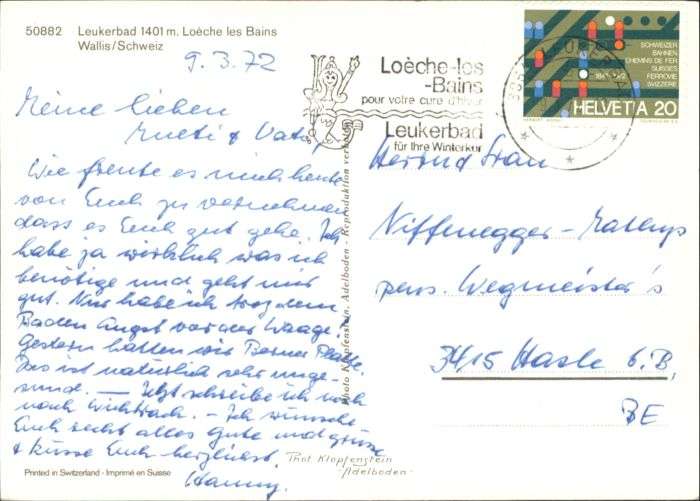 50882 Leukerbad 1401 m. Loèche les Bains
Wallis/Schweiz
9.3.72
Meine lieben
Mueti & Vati,
Wie freute es mich heute
von Euch zu vernehmen
dass es Euch gut gehe. Ich
habe ja wirklich was ich
benötige und geht mir
gut. Nur habe ich trotz dem
Baden Angst vor der Waage.
Gestern hatten wir Berner Platte.
Das ist natürlich sehr unge-
sund. — Jetzt schreibe ich noch
nach Wichtrach. – Ich wünsche
Euch recht alles gute und grüsse
& küsse Euch herzlichst.
Hanny.
Printed in Switzerland - Imprimé en Suisse
Phot. Klopfenstein
-Adelboden-
Photo Klopfenstein, Adelboden - Reproduktion verboten
Loèche-les
-Bains
pour votre cure d'hiver
Leukerbad
für Ihre Winterkur
SCHWEIZER
BAHNEN
CHEMINS DE FER
SUISSES
FERROVIE
SVIZZERE
HELVETIA 20
Herr und Frau
Niffenegger-
pens. Wegmeister's
3415 Hasle b.B,
BE